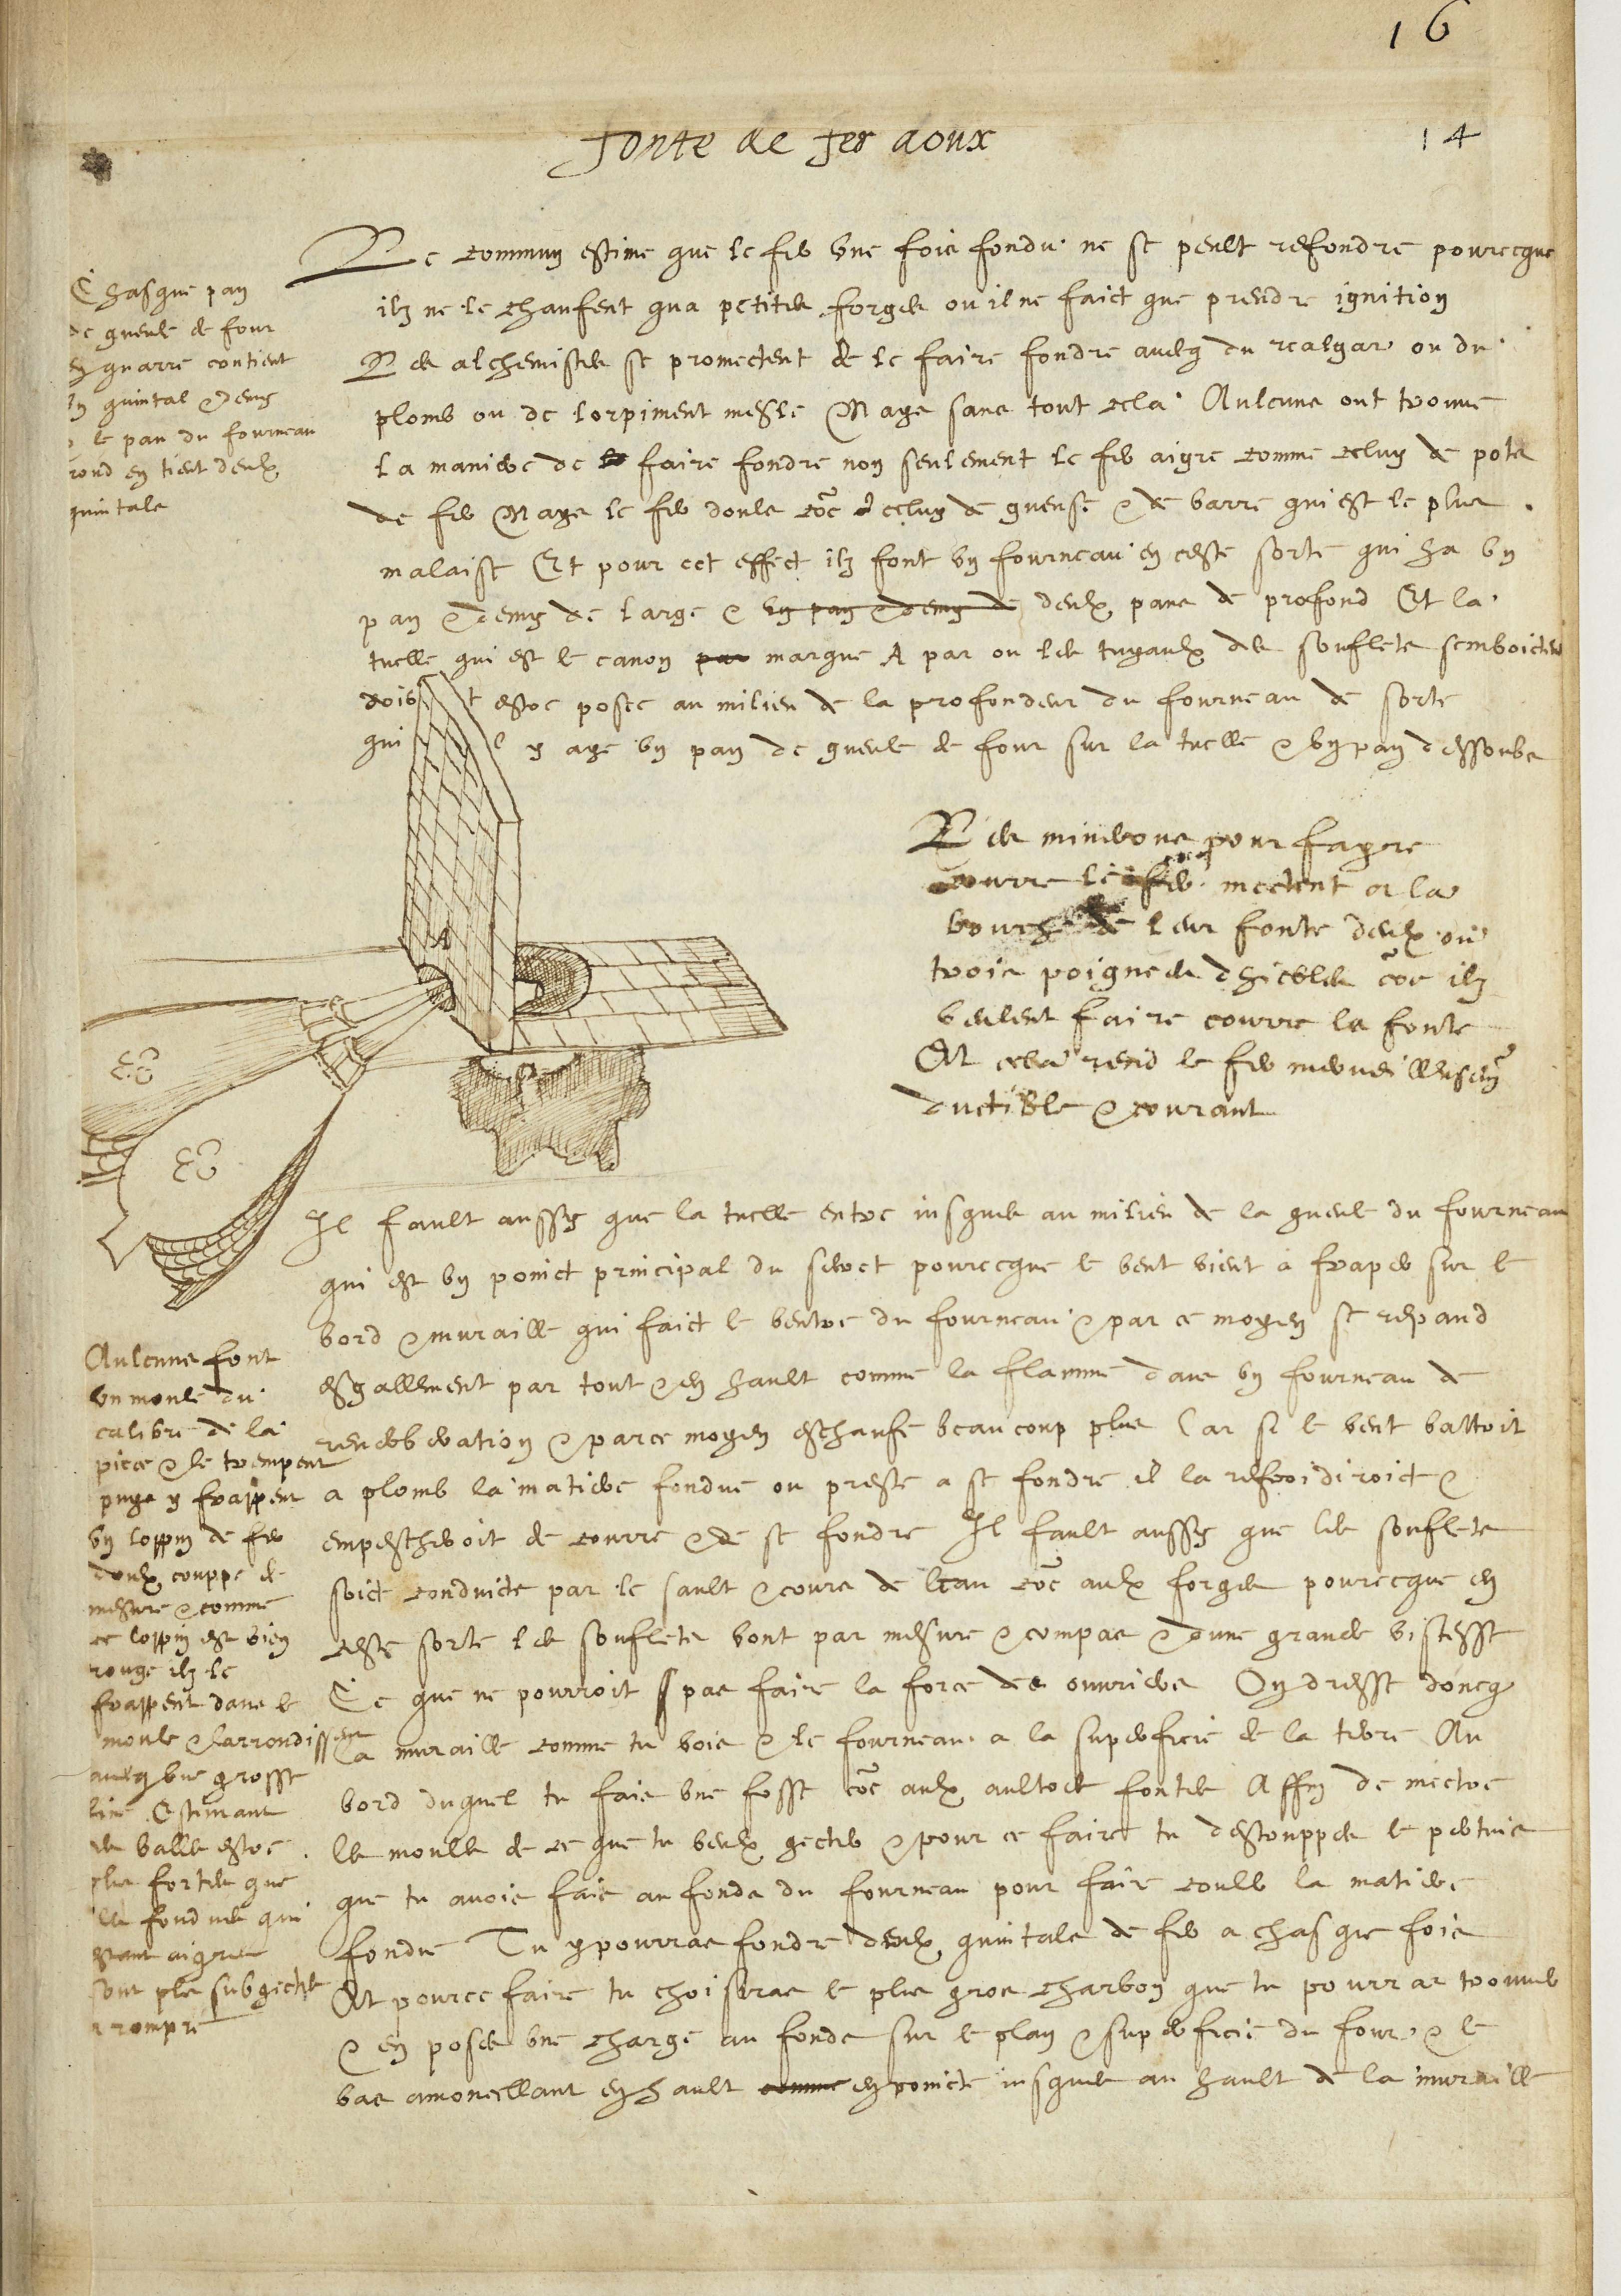 16
14
Fonte de fer doux
Le commun estime que le fer une fois fondu ne se peult refondre pourceque
ilz ne le chaufent qua petites forges ou il ne faict que prendre ignition
Les alchemistes se promectent de le faire fondre avecq du realgar ou du
plomb ou de lorpiment mesle Mays sans tout cela Aulcuns ont trouve
la maniere de le faire fondre non seulement le fer aigre comme celuy de pots
de fer Mays le fer doulx coe celuy de gueuse & de barre qui est le plus
malaise Et pour cet effect ilz font un fourneau en ceste sorte qui ha un
pan & demy de large & un pan & demy de deulx pans de profond Et la
tuelle qui est le canon par marque A par ou les tuyaulx des souflets semboictent
doibt estre posee au milieu de la profondeur du fourneau de sorte
quil y aye un pan de gueule de four sur la tuelle & un pan dessoubs
Chasque pan
de gueule de four
en quarre contient
un quintal & demy
le pan du fourneau
rond en tient deulx
quintals
A
Les minerons pour fayre
courre le fer mectent a la
bouche de leur fonte deulx ou
trois poignees dhiebles coe ilz
veulent faire courre la fonte
Et cela rend le fer merveilleusem
ductible & courant
Il fault aussy que la tuelle entre jusques au milieu de la gueule du fourneau
qui est un poinct principal du secret pourceque le vent vient a fraper sur le
bord & muraille qui faict le ventre du fourneau & par ce moyen se respand
esgallement par tout & en hault comme la flamme dans un fourneau de
reverberation & par ce moyen eschaufe beaucoup plus Car si le vent battoit
a plomb la matiere fondue ou preste a se fondre il la refroidiroict &
empescheroit de courre & de se fondre Il fault aussy que les souflets
soict conduicts par le sault & cours de leau coe aulx forges pourceque en
ceste sorte les souflets vont par mesure & compas & dune grande vistesse
Ce que ne pourroit pas faire la force des ouvriers On dresse doncq
la muraille comme tu vois & le fourneau a la superficie de la terre Au
bord duquel tu fais une fosse coe aulx aultres fontes Affin de mectre
le moule de ce que tu veulx gecter & pour ce faire tu destouppes le pertuis
que tu avois fais au fonds du fourneau pour faire couler la matiere
fondue Tu y pourras fondre deulx quintals de fer a chasque fois
Et pource faire tu choisiras le plus gros charbon que tu pourras trouver
& en poses une charge au fonds sur le plan & superficie du four & le
vas amoncellant en hault comme en poincte jusques au hault de la muraille
Aulcuns font
un moule du
calibre de la
piece & le trempent
puys y frappent
un loppin de fer
doulx couppe de
mesure & comme
ce loppin est bien
rouge ilz le
frappent dans le
moule & larrondissent
avecq une grosse
lime Estimant
les balles estre
plus fortes que
les fondues qui
estant aigres
sont plus subgectes
a rompre